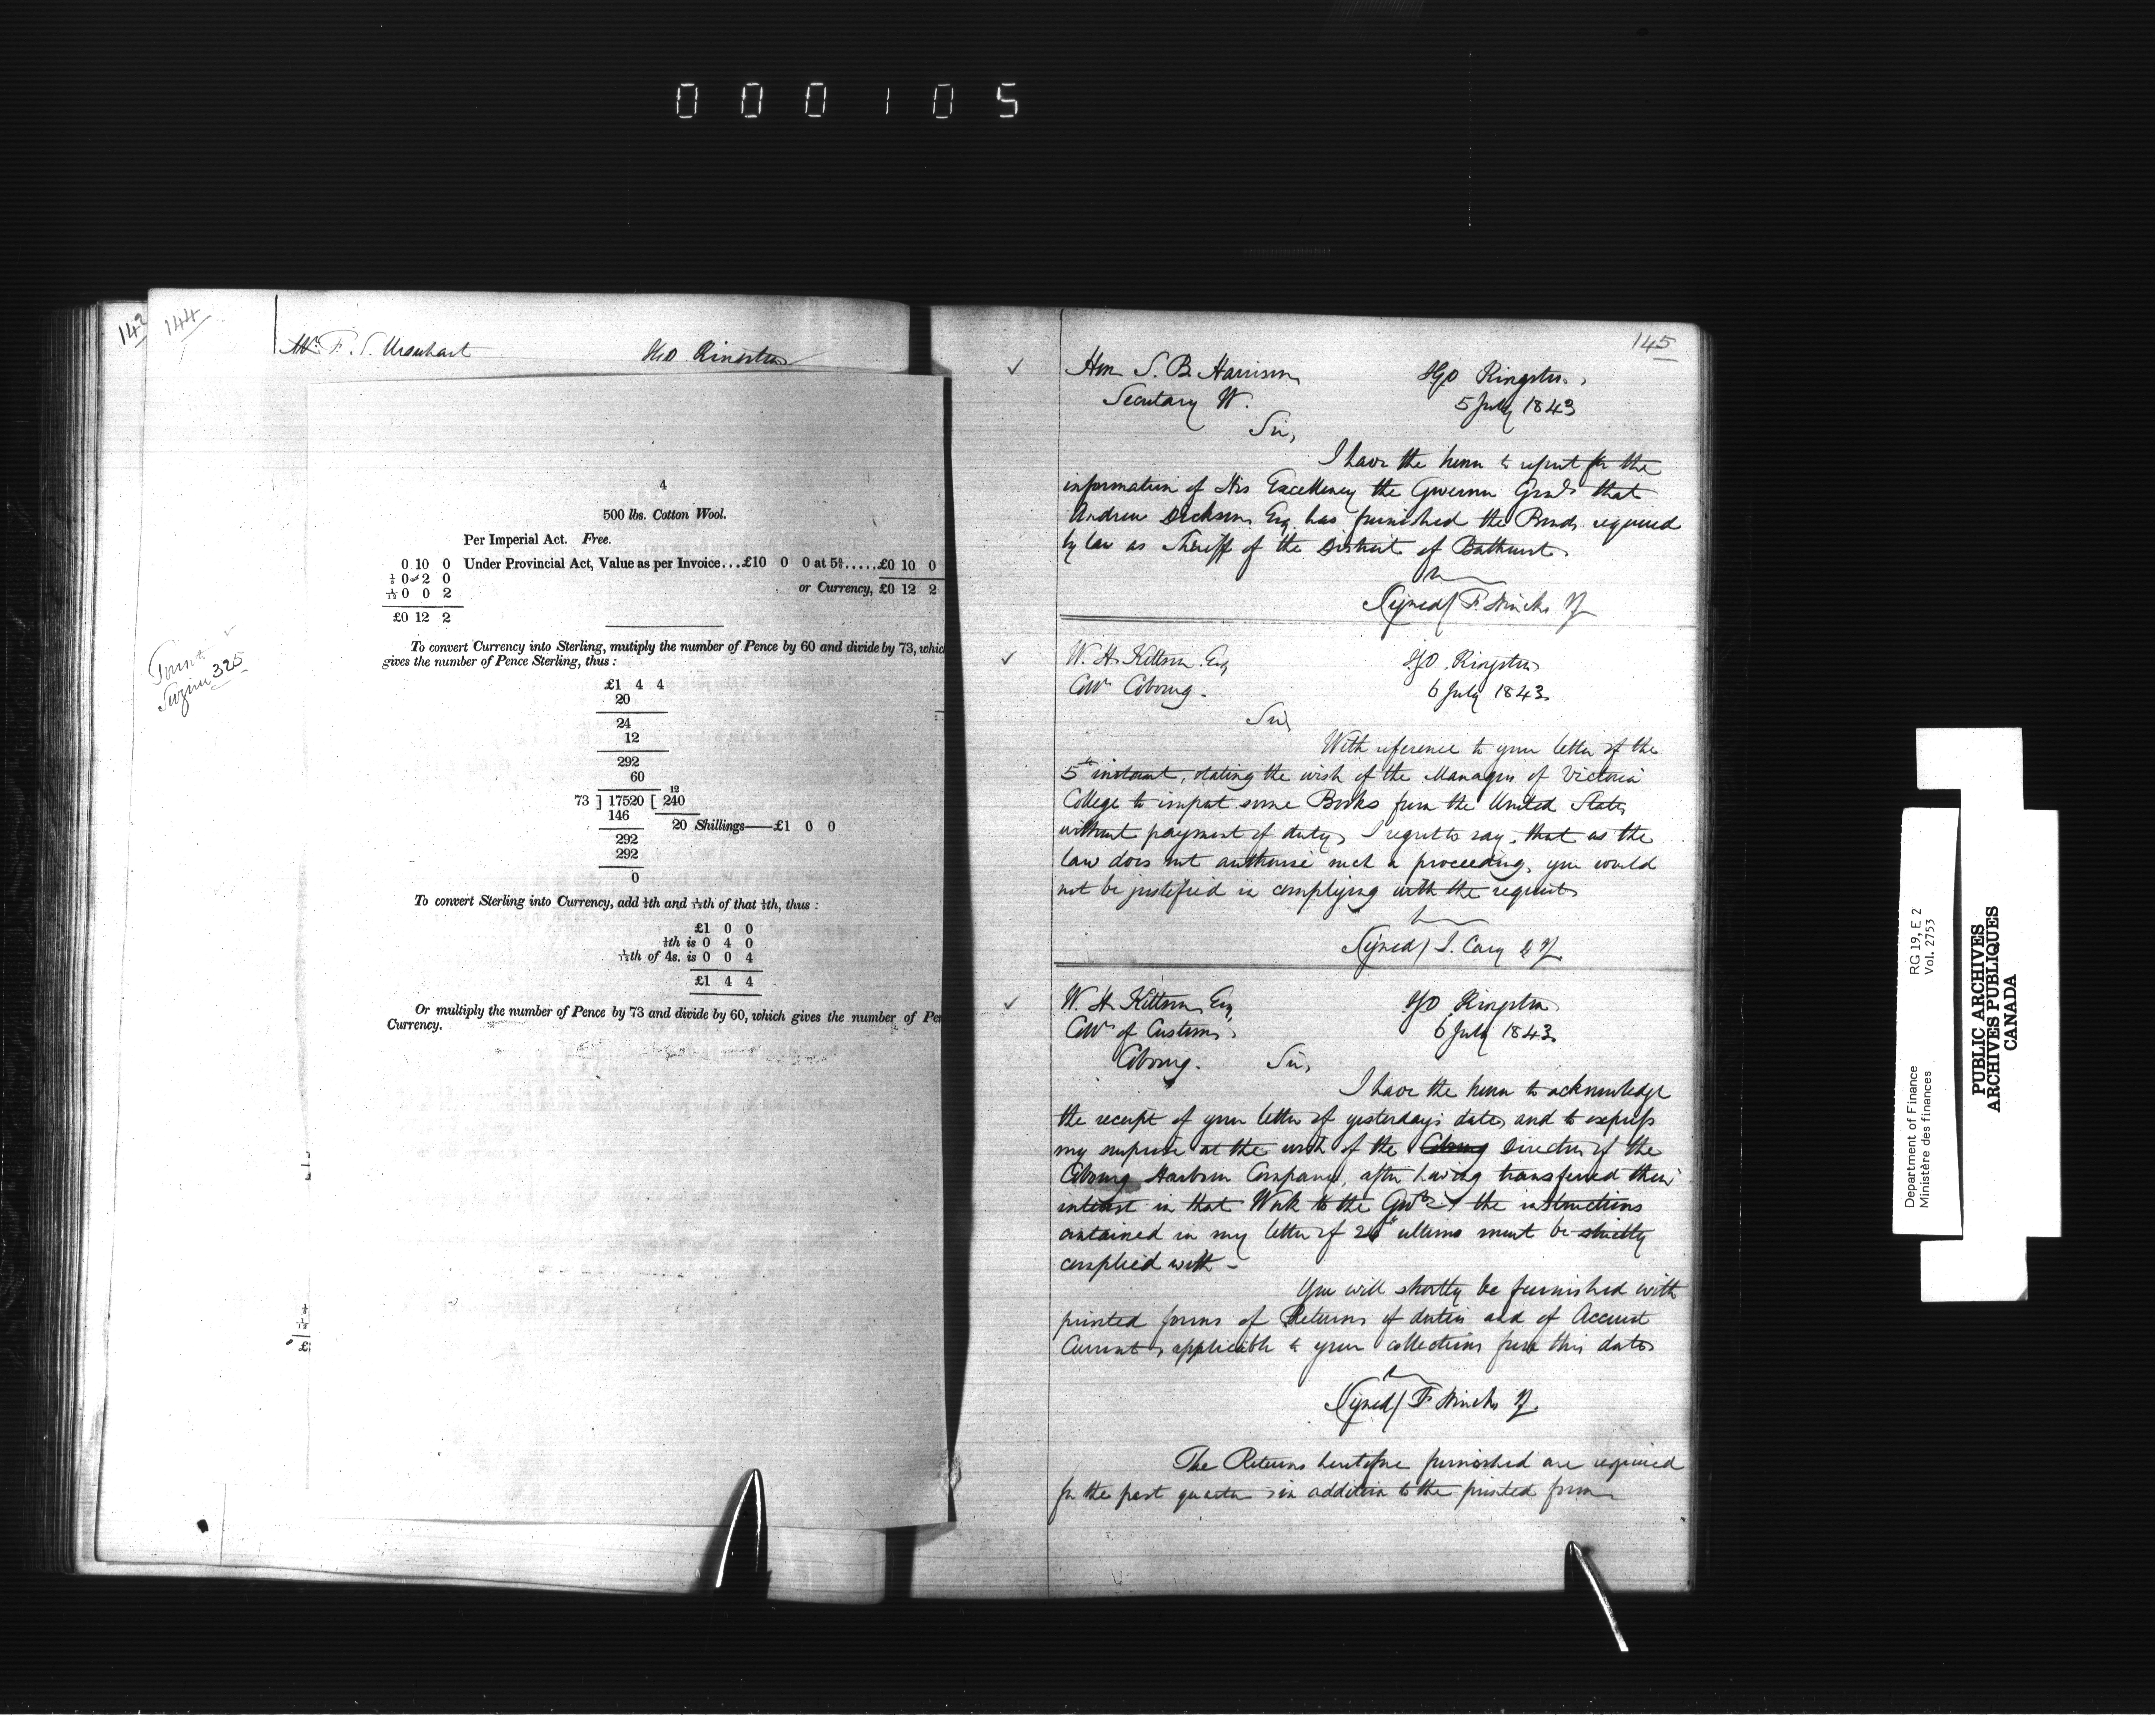 000105
142
144
Mr. F. S. Urquhart IGO Kingston
4
500 lbs. Cotton Wool.
Per Imperial Act. Free.
0 10 0 Under Provincial Act, Value as per Invoice...£10 0 0 at 5 ⅌.....£0 10 0
⅕ 0 2 0
or Currency, £0 12 2
1/12 0 0 2
£0 12 2
To convert Currency into Sterling, mutiply the number of Pence by 60 and divide by 73, whic
gives the number of Pence Sterling, thus :
£1 4 4
20
24
12
292
60
12
73 ] 17520 [ 240
146
20 Shillings—£1 0 0
292
292
0
To convert Sterling into Currency, add ⅕th and 1/12th of that ⅕th, thus :
£1 0 0
⅕th is 0 4 0
1/12th of 4s. is 0 0 4
£1 4 4
Or multiply the number of Pence by 73 and divide by 60, which gives the number of Pe
Currency.
325
145
Hon S. B. Harrison IGO Kingston
Secretary W. 5 July 1843
Sir,
I have the honor to report for the
information of His Excellency the Governor Genl that
Andrew Dickson Esq has furnished the Bonds required
by law as Sheriff of the District of Bathurst
Signed/ F. Hincks IG
W. H. Kittson Esq IGO Kingston
Collr Cobourg. 6 July 1843
Sir
With reference to your letter of the
5th instant, stating the wish of the Managers of Victoria
College to import some Books from the United States
without payment of duty, I regret to say, that as the
law does not authorise such a proceeding, you would
not be justified in complying with the request
Signed/ J. Cary D IG
W. H. Kittson Esq IGO Kingston
Collr of Customs 6 July 1843
Cobourg. Sir,
I have the honor to acknowledge
the receipt of your letter of yesterday's date, and to express
my surprise at the wish of the Cobourg Directors of the
Cobourg Harbour Company, after having transferred their
interest in that Work to the Govt & the instructions
contained in my letter of 26th ultimo must be strictly
complied with -
You will shortly be furnished with
printed forms of Returns of duties and of Account
Current, applicable to your collections from this date
Signed/ F Hincks IG.
The Returns heretofore furnished are required
for the past quarter in addition to the printed form
Department of Finance RG 19, E 2
Ministère des finances Vol. 2753
PUBLIC ARCHIVES
ARCHIVES PUBLIQUES
CANADA